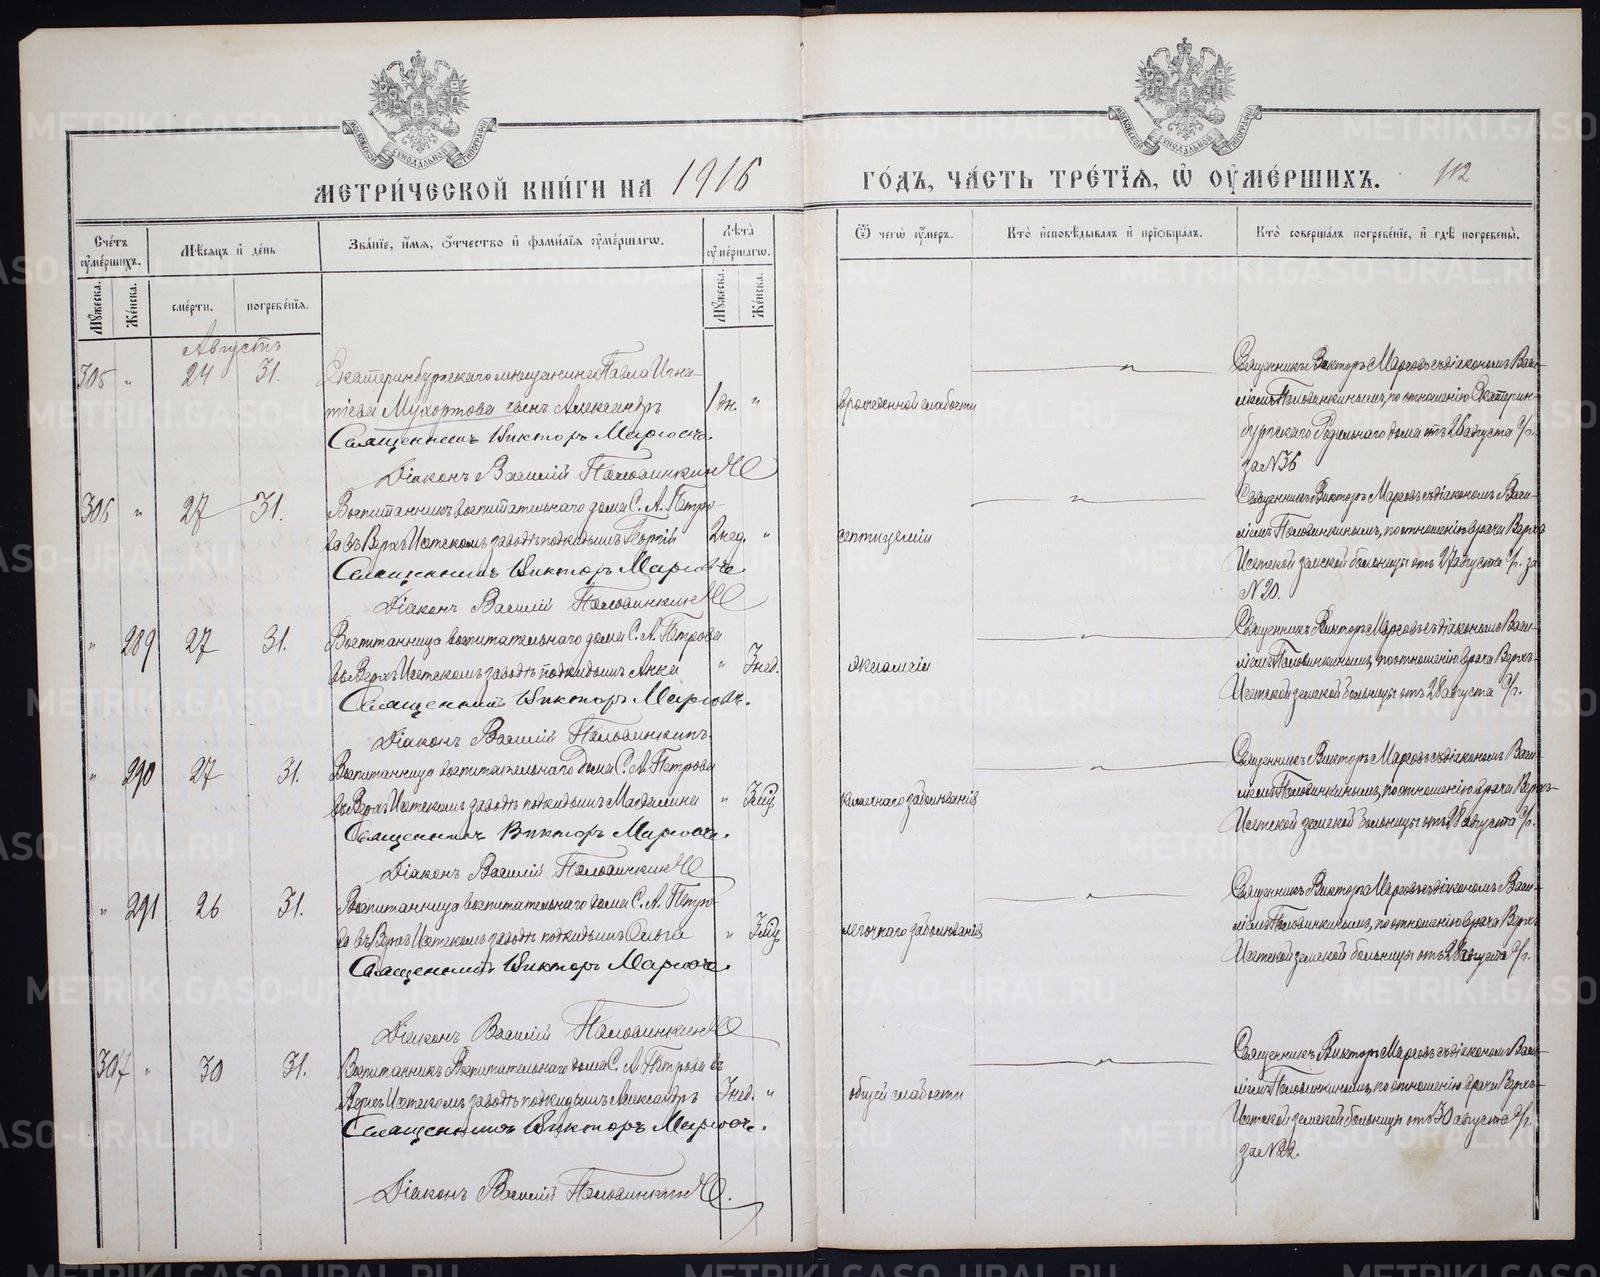 МЕТРИ́ЧЕСКОЙ КНИ́ГИ НА 1916
ГО́ДЪ, ЧА́СТЬ ТРЕ́ТЇѦ, Ѡ ОУМЕ́РШИХЪ. 112
Сче́тъ оуме́ршихъ.
Мѣ́сѧцъ и де́нь
Зва́нїе, и́мѧ, о́тчество и фами́лїѧ оуме́ршагѡ.
Лѣ́та оуме́ршагѡ.
Ѿ чегѡ̀ оу́меръ.
Кто̀ исповѣ́дывалъ и прїѡбща́лъ.
Кто̀ соверша́лъ погребе́нїе, и гдѣ̀ погребены̀.
Мꙋ́жеска.
Же́нска.
сме́рти.
погребе́нїѧ.
Мꙋ́жеска.
Же́нска.
Августъ
305 " 24 31.
Екатеринбургскаго мѣщанина Павла Игна-
тіева Мухортова сынъ Александръ
1 дн. "
Священникъ Викторъ
Діаконъ Василій Половинкинъ
врожденной слабости
Священникъ Викторъ съ діакономъ Васи-
ліемъ Половинкинымъ, по отношенію Екатерин-
бургскаго Родильнаго дома отъ 26 августа с/г.
за №36
306 " 27 31.
Воспитанникъ воспитательнаго дома С. А. Петро-
ва въ Верхъ Исетскомъ заводѣ подкидышъ Георгій
2 нед. "
Священникъ Викторъ
Діаконъ Василій Половинкинъ
септицеміи
Священникъ Викторъ съ діакономъ Васи-
ліемъ Половинкинымъ, по отношенію врача Верхъ
Исетской земской больницы отъ 27 августа с/г. за
№20.
" 289 27 31.
Воспитанница воспитательнаго дома С. А. Петрова
въ Верхъ Исетскомъ заводѣ подкидышъ Анна
" 3 нед.
Священникъ Викторъ
Діаконъ Василій Половинкинъ.
Священникъ Викторъ съ діакономъ Васи-
ліемъ Половинкинымъ, по отношенію врача Верхъ-
Исетской земской больницы отъ 28 августа с/г.
" 290 27 31.
Воспитанница воспитательнаго дома С. А. Петрова
въ Верхъ Исетскомъ заводѣ подкидышъ Магдалина
"
Священникъ Викторъ
Діаконъ Василій Половинкинъ
кишечнаго заболѣванія
Священникъ Викторъ съ діакономъ Васи-
ліемъ Половинкинымъ, по отношенію врача Верхъ-
Исетской земской больницы отъ 28 августа с/г.
" 291 26 31.
Воспитанница воспитательнаго дома С. А. Петро-
ва въ Верхъ Исетскомъ заводѣ подкидышъ Ольга
"
Священникъ Викторъ
Діаконъ Василій Половинкинъ
легочнаго заболѣванія
Священникъ Викторъ съ діакономъ Васи-
ліемъ Половинкинымъ, по отношенію врача Верхъ
Исетской земской больницы отъ 28 августа с/г.
307 " 30 31.
Воспитанникъ Воспитательнаго дома С. А. Петрова въ
Верхъ Исетскомъ заводѣ подкидышъ Александръ
3 нед. "
Священникъ Викторъ
Діаконъ Василій Половинкинъ.
общей слабости
Священникъ Викторъ съ діакономъ Васи-
ліемъ Половинкинымъ, по отношенію врача Верхъ-
Исетской земской больницы отъ 30 августа с/г.
за №22.
METRIKI.GASO-URAL.RU